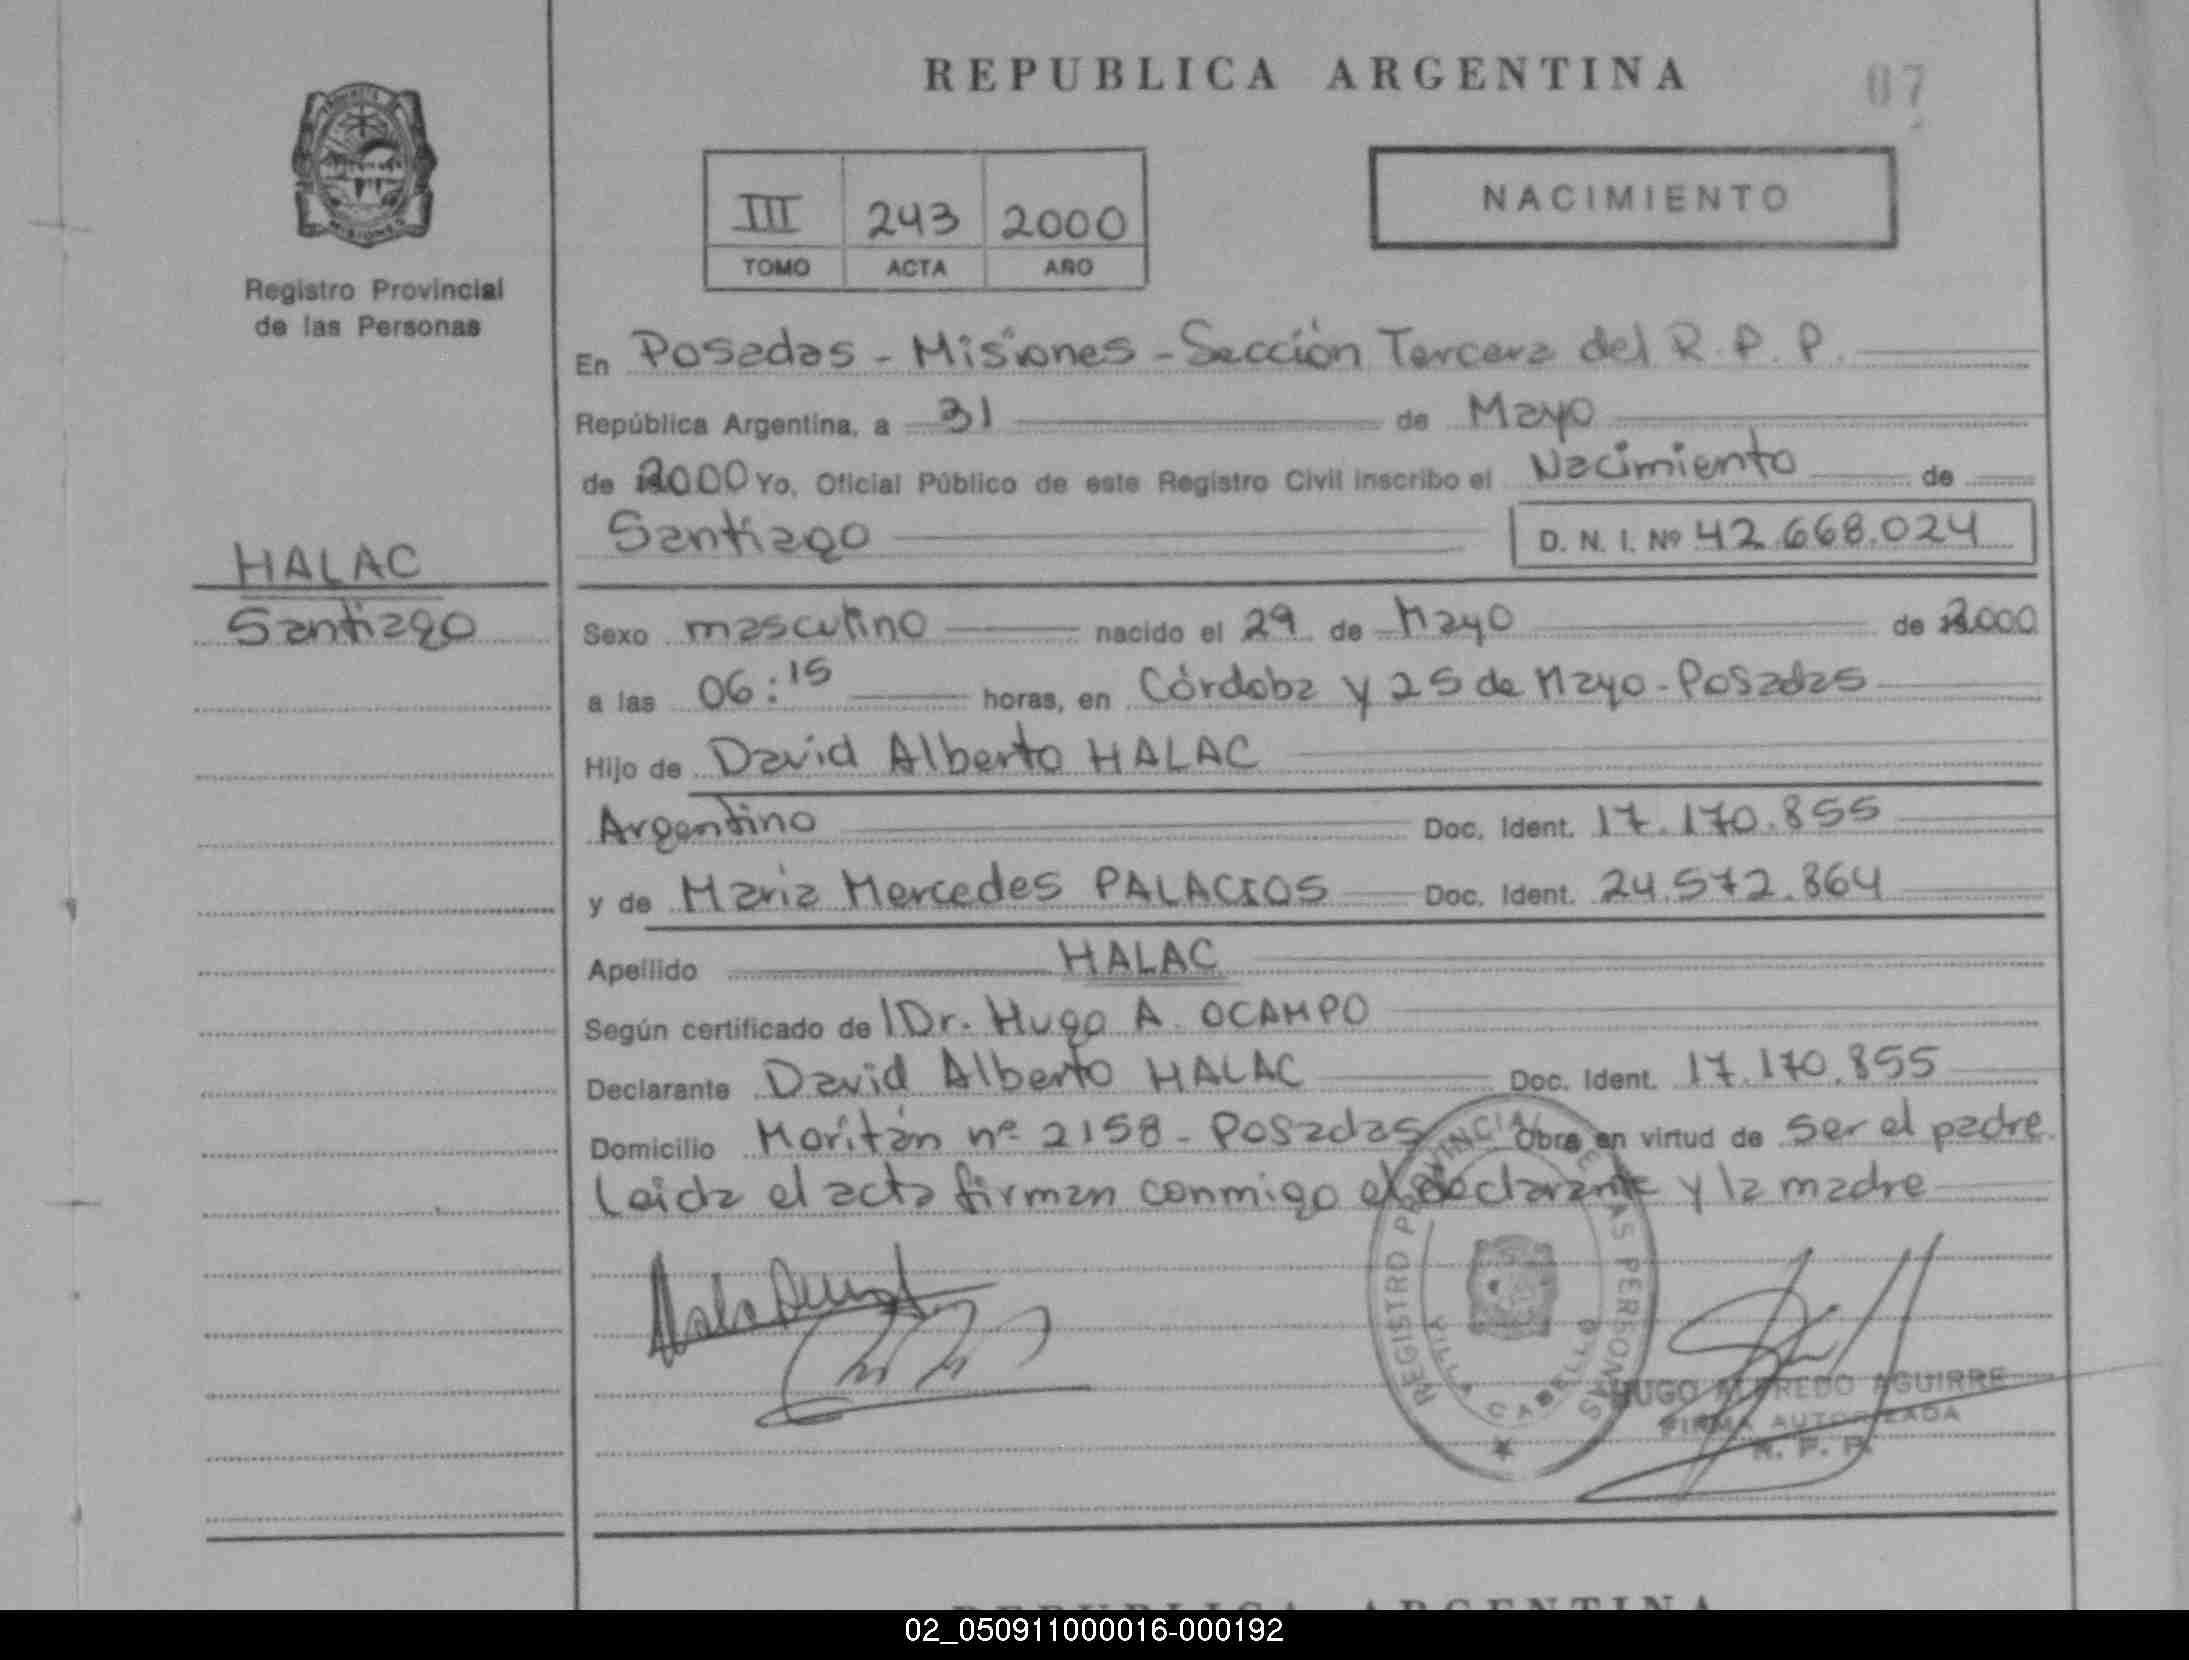 REPUBLICA ARGENTINA
07
NACIMIENTO
III 243 2000
TOMO ACTA AÑO
Registro Provincial
de las Personas
En Posadas - Misiones - Sección Tercera del R. P. P.
República Argentina, a 31 de Mayo
de 2000 Yo, Oficial Público de este Registro Civil inscribo el Nacimiento de
Santiago D. N. I. Nº 42.668.024
HALAC
Santiago
Sexo masculino nacido el 29 de Mayo de 2000
a las 06:15 horas, en Córdoba y 25 de Mayo - Posadas
Hijo de David Alberto HALAC
Argentino Doc. Ident. 17.170.855
y de Maria Mercedes PALACIOS Doc. Ident. 24.572.864
Apellido HALAC
Según certificado de Dr. Hugo A. OCAMPO
Declarante David Alberto HALAC Doc. Ident. 17.170.855
Domicilio nº 2158 - Posadas Obra en virtud de ser el padre
Leida el acta firman conmigo el declarante y la madre
REGISTRO PROVINCIAL DE LAS PERSONAS
VILLA CABELLO
HUGO ALFREDO AGUIRRE
FIRMA AUTORIZADA
R. P. P.
REPUBLICA ARGENTINA
02_050911000016-000192